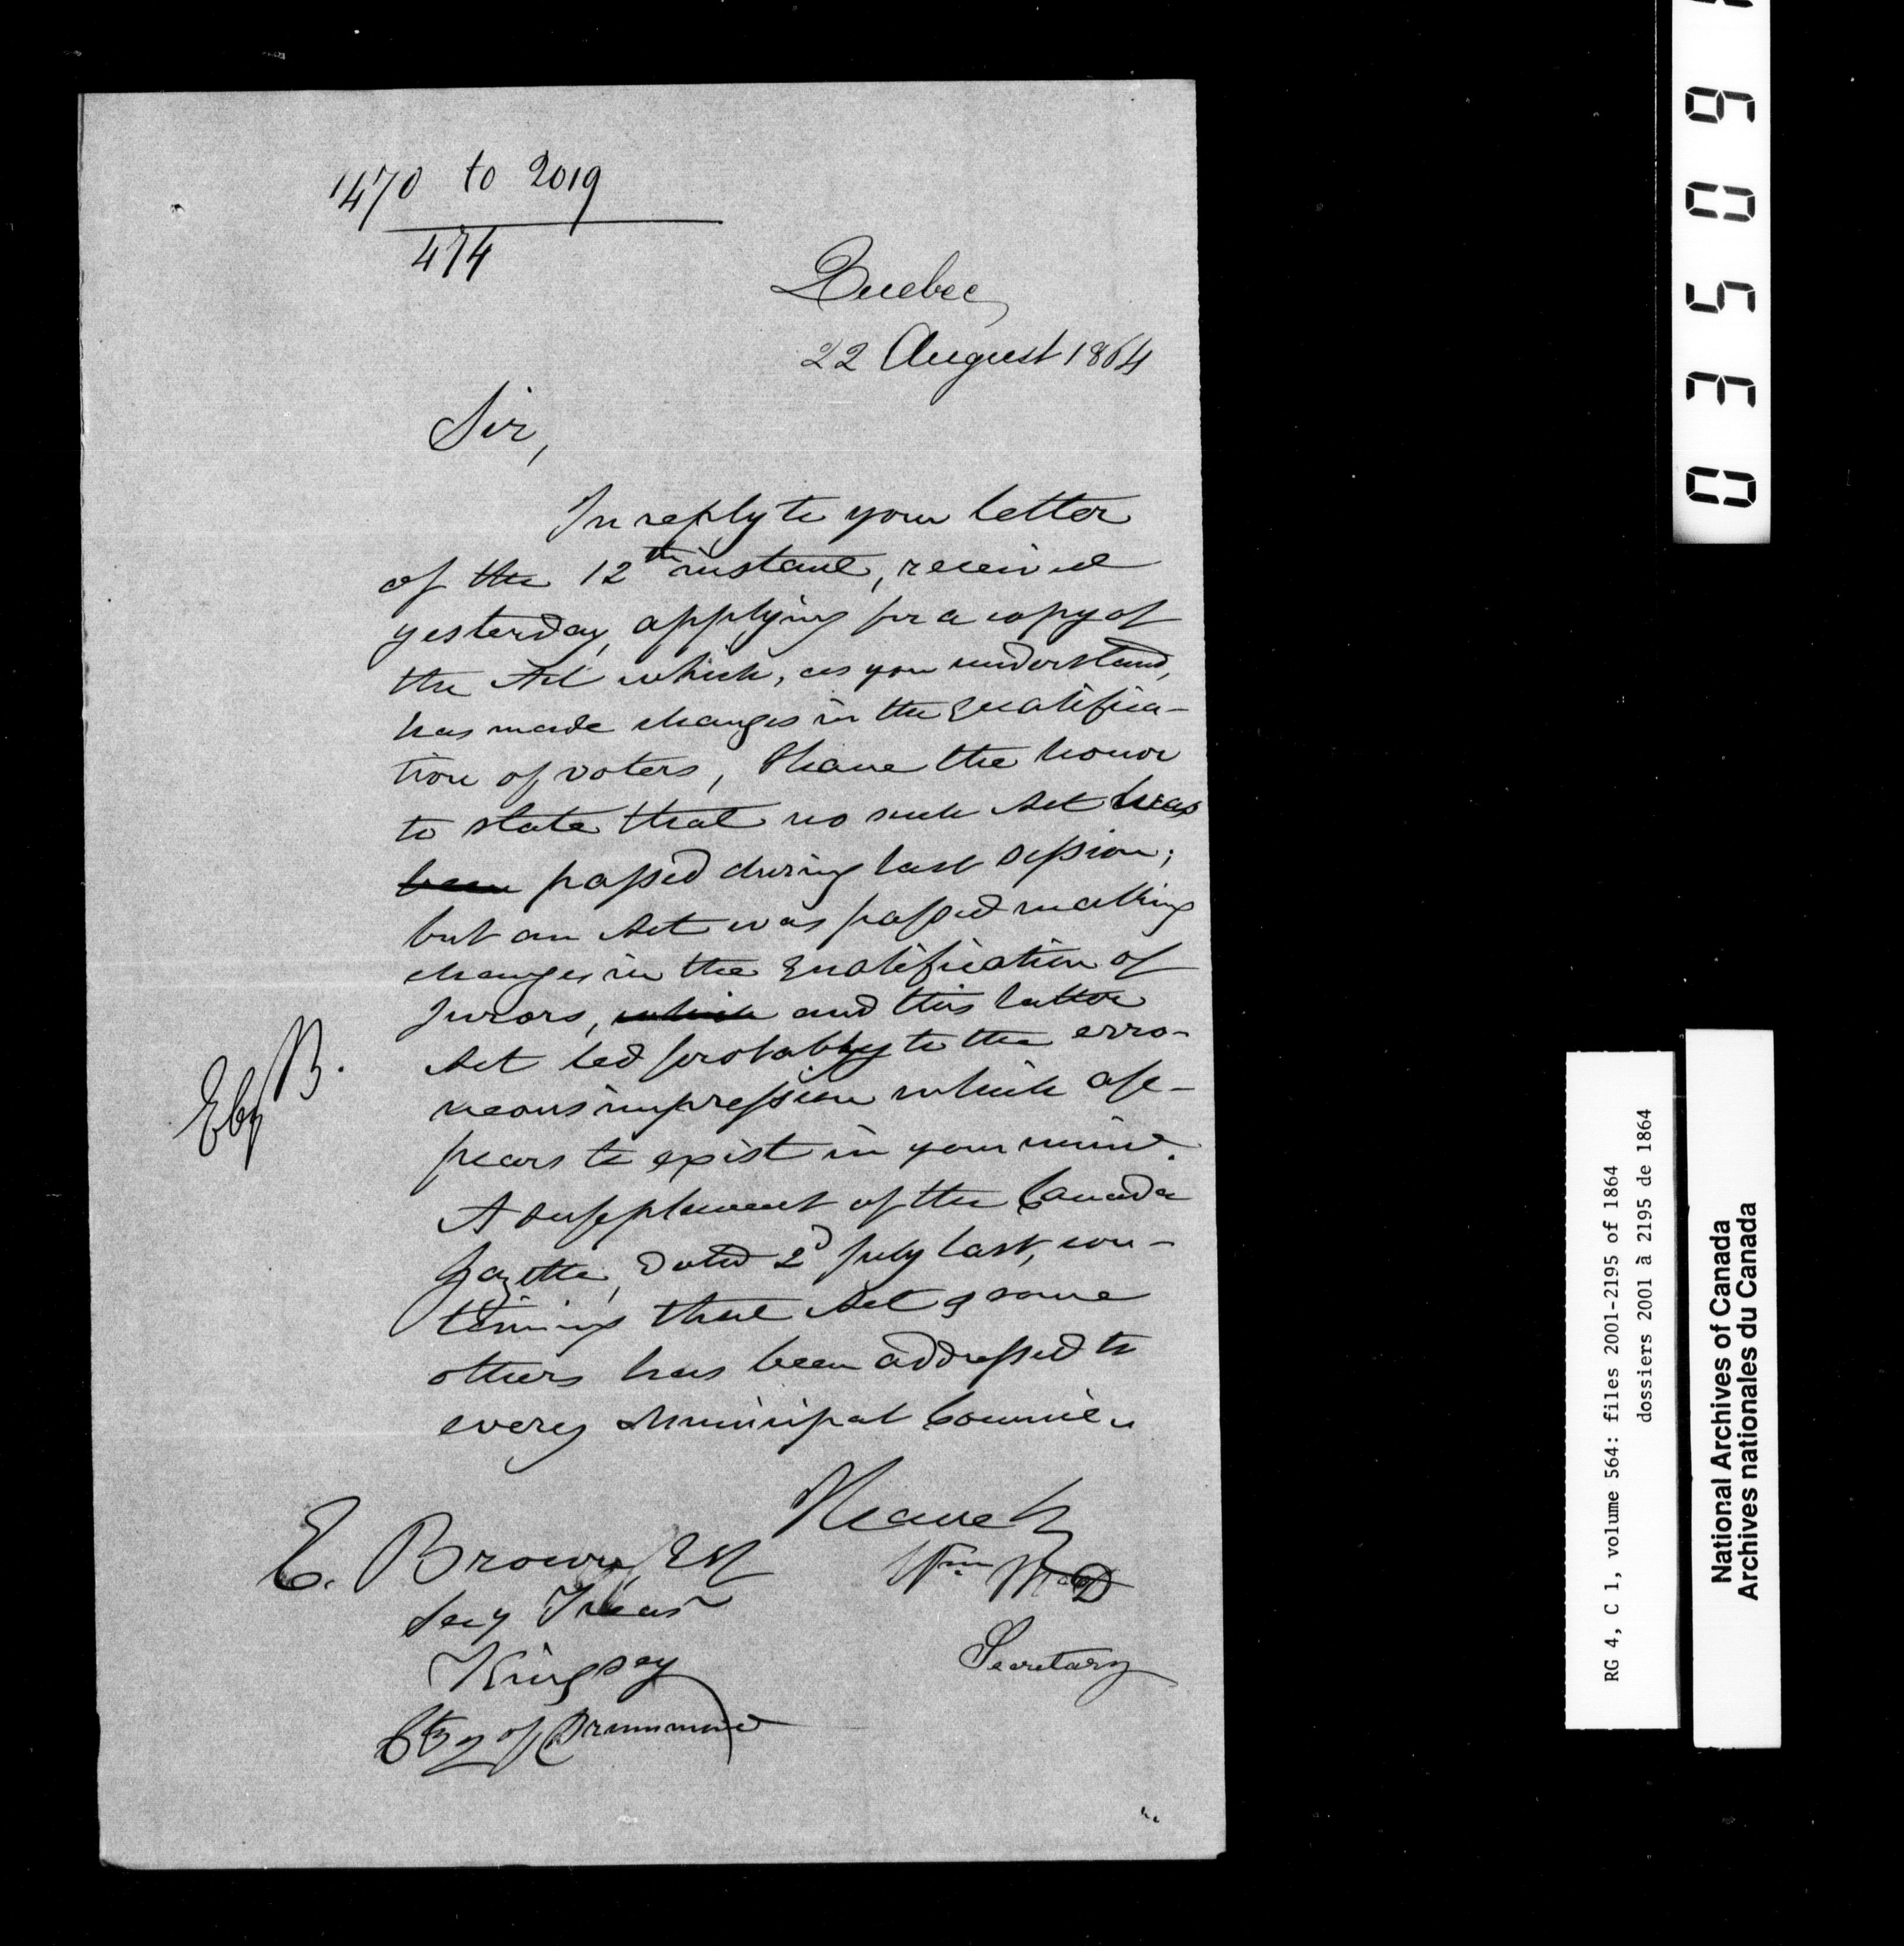 1470 to 2019
474
Quebec
22 August 1864
Sir,
In reply to your letter
of the 12th instant, received
yesterday, applying for a copy of
the Act which, as you understand,
has made changes in the qualifica-
tion of voters, I have the honor
to state that no such Act was
been passed during last session;
but an Act was passed making
changes in the qualification of
Jurors, which and this latter
Act led probably to the erro-
neous impression which ap-
pears to exist in your mind.
A supplement of the Canada
Gazette, dated 2d July last, con-
taining that Act & some
others has been addressed to
every Municipal Council
E. Brown, Esq
Secy Treas
Kingsey
Cty of Drummond
I have &c
Wm McD
Secretary
Eby B.
03509
RG 4, C 1, volume 564: files 2001-2195 of 1864
dossiers 2001 à 2195 de 1864
National Archives of Canada
Archives nationales du Canada